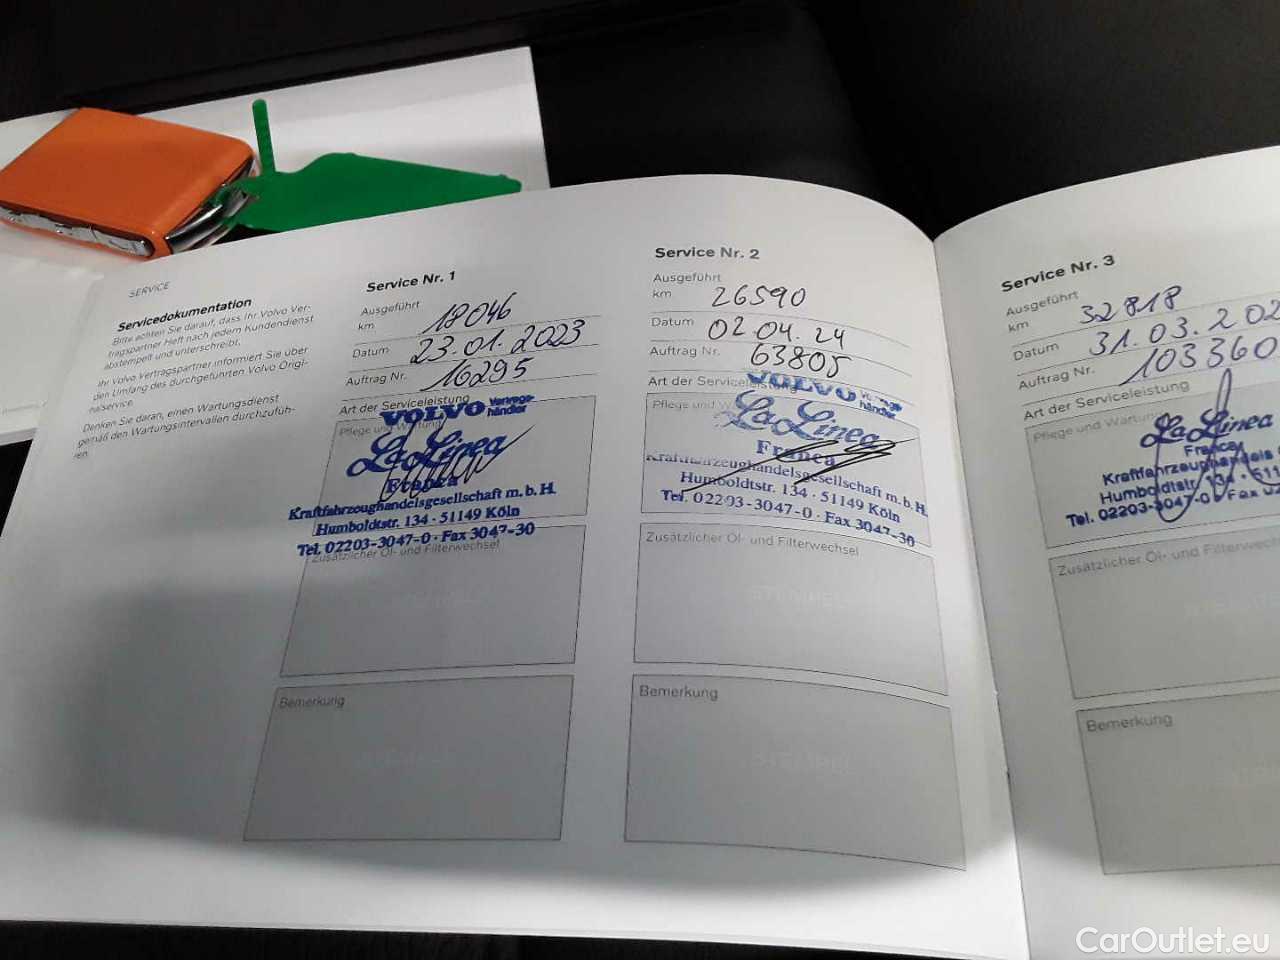 SERVICE
Servicedokumentation
Bitte achten Sie darauf, dass Ihr Volvo Ver-
tragspartner Heft nach jedem Kundendienst
abstempelt und unterschreibt.
Ihr Volvo Vertragspartner informiert Sie über
den Umfang des durchgeführten Volvo Origi-
nalservice.
Denken Sie daran, einen Wartungsdienst
gemäß den Wartungsintervallen durchzufüh-
ren.
Service Nr. 1
Ausgeführt
km 18046
Datum 23.01.2023
Auftrag Nr. 16295
Art der Serviceleistung
Pflege und Wartung
VOLVO Vertrags-
händler
La Linea
Franca
Kraftfahrzeughandelsgesellschaft m.b.H.
Humboldtstr. 134 · 51149 Köln
Tel. 02203-3047-0 · Fax 3047-30
Zusätzlicher Öl- und Filterwechsel
STEMPEL
Bemerkung
STEMPEL
Service Nr. 2
Ausgeführt
km 26590
Datum 02.04.24
Auftrag Nr. 63805
Art der Serviceleistung
Pflege und
VOLVO Vertrags-
händler
La Linea
Franca
Kraftfahrzeughandelsgesellschaft m.b.H.
Humboldtstr. 134 · 51149 Köln
Tel. 02203-3047-0 · Fax 3047-30
Zusätzlicher Öl- und Filterwechsel
STEMPEL
Bemerkung
STEMPEL
Service Nr. 3
Ausgeführt
km 32818
Datum 31.03.202
Auftrag Nr. 103360
Art der Serviceleistung
Pflege und Wartung
La Linea
Franca
Kraftfahrzeughandels
Humboldtstr. 134 · 511
Tel. 02203-3047-0 Fax
Zusätzlicher Öl- und Filterwechs
Bemerkung
CarOutlet.eu